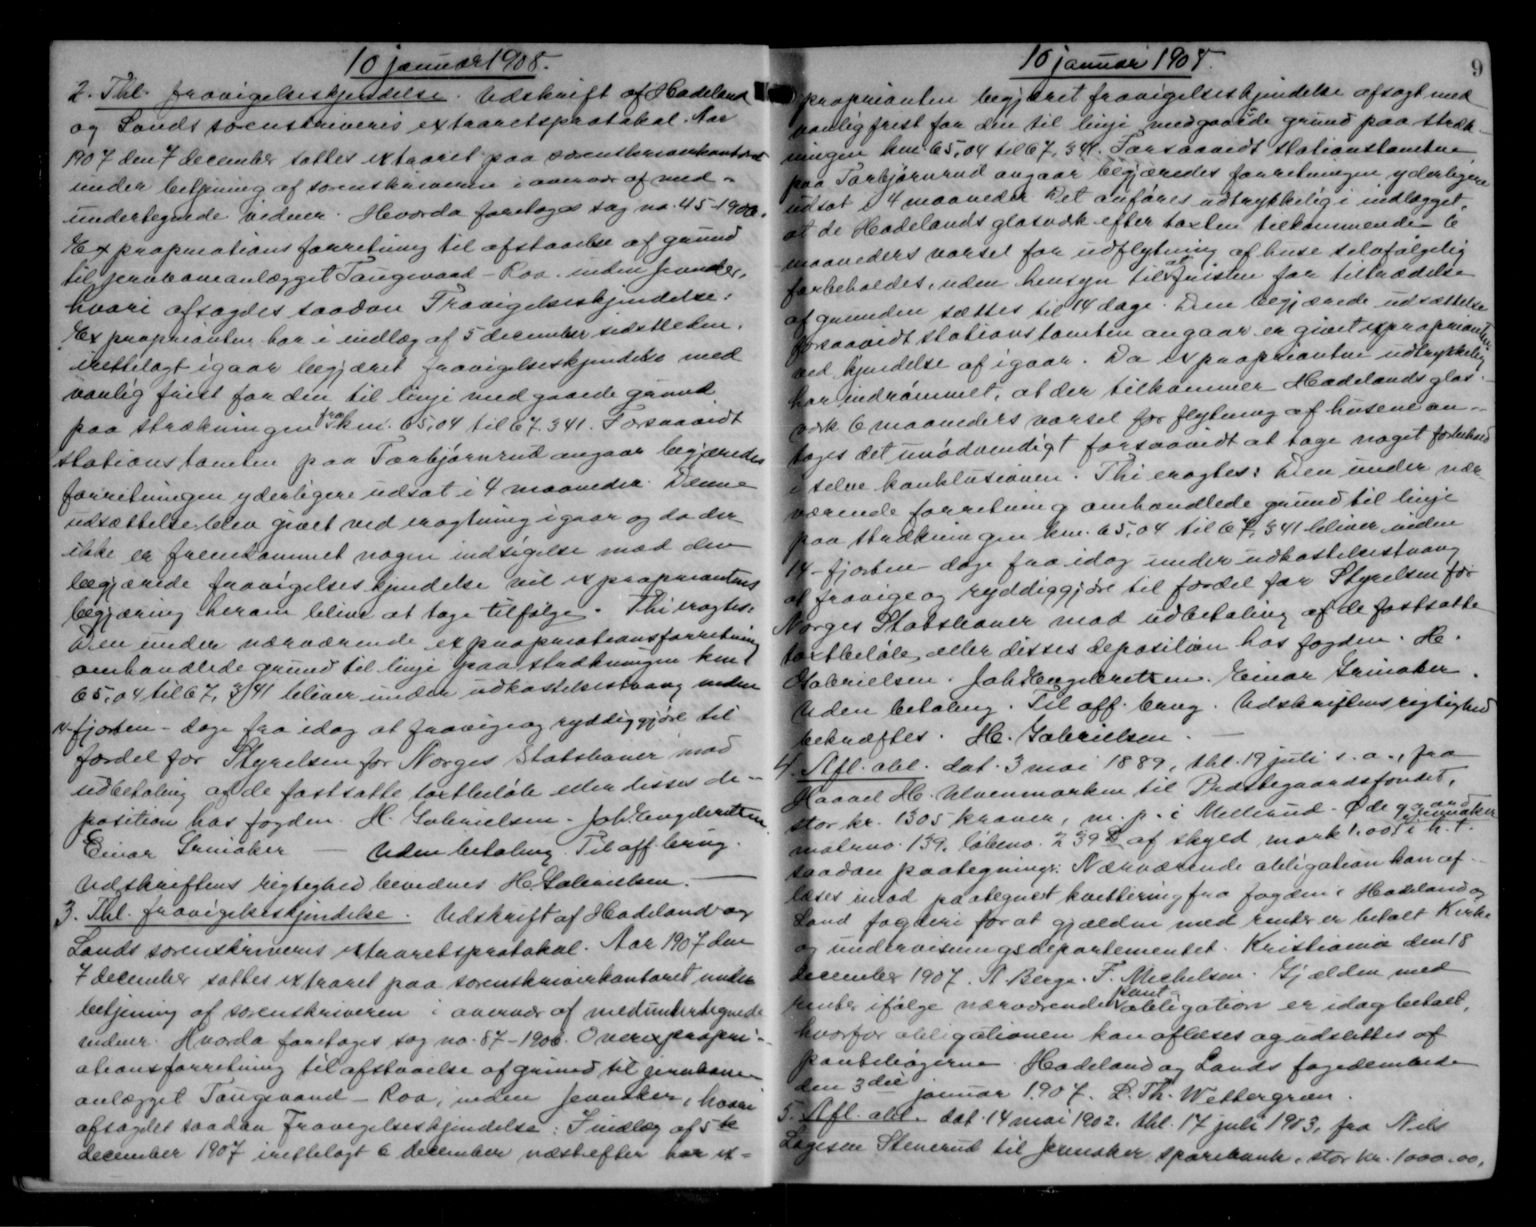 10 januar 1908.
2. Thl. fravigelseskjendelse. Udskrift af Hadeland
og Lands sorenskriveris extraretsprotokol. Aar
1907 den 7 december sattes extraret paa sorenskriverkontoret
under betjening af sorenskriveren i overvær af med-
undertegnede vidner. Hvorda foretoges sag no. 45-1900.
Expropriationsforretning til afstaaelse af grund
til jernbaneanlægget Tangevaand - Roa inden Jevnaker,
hvori afsagdes saadan Fravigelseskjendelse:
Exproprianten har i indlæg af 5 december sidstleden,
irettelagt igaar begjæret fravigelseskjendelse med
vanlig frist for den til linje medgaaede grund
paa strækningen fra km. 65,04 til 67.341. Forsaavidt
stationstomten paa Torbjørnrud angaar begjæredes
forretningen yderligere udsat i 4 maaneder. Denne
udsættelse blev givet ved eragtning igaar og da der
ikke er fremkommet nogen indsigelse mod den
begjærede fravigelseskjendelse vil expropriantens
begjæring herom blive at tage tilfølge. Thi eragtes:
Den under nærværende expropriationsforretning
omhandlede grund til linje paa strækningen km.
65,04 til 67,341 bliver under udkastelsestvang inden
14- fjorten - dage fra idag at fravige og ryddiggjøre til
fordel for Styrelsen for Norges Statsbaner mod
udbetaling af de fastsatte taxtbeløb eller disses de-
position hos fogden. H. Gabrielsen. Joh. Engebretsen.
Einar Grinaker — Uden betaling. Til off. brug.
Udskriftens rigtighed bevidnes H Gabrielsen. —
3. Thl. fravigelseskjendelse. Udskrift af Hadeland og
Lands sorenskriveris extraretsprotokol. Aar 1907 den
7 december sattes extraret paa sorenskriverkontoret under
betjening af sorenskriveren i overvær af medundertegnede
vidner. Hvorda foretoges sag no. 87-1906. Overexpropri-
ationsforretning til afstaaelse af grund til jernbane
anlægget Tangevaand - Roa, inden Jevnaker, hvori
afsagdes saadan Fravigelseskjendelse: I indlæg af 5te
december 1907 irettelagt 6 december næstefter har ex-
10 januar 1908.
9
proprianten begjæret fravigelseskjendelse afsagt med
vanlig frist for den til linje medgaaede grund paa stræk-
ningen km 65,04 til 67,341. Forsaavidt stationstomten
paa Torbjørnrud angaar begjæredes forretningen yderligere
udsat i 4 maaneder. Det anføres udtrykkelig i indlægget,
at de Hadelands glasværk efter taxten tilkommende 6
maaneders varsel for udflytning af huse selvfølgelig
forbeholdes, uden hensyn til at fristen for tiltrædelse
af grunden sættes til 14 dage. Den begjærede udsættelse
forsaavidt stationstomten angaar er givet exproprianten
ved kjendelse af igaar. Da exproprianten udtrykkelig
har indrømmet, at der tilkommer Hadelands glas-
værk 6 maaneders varsel for flytning af husene an-
tages det unødvendigt forsaavidt at tage noget forbehold
i selve konklusionen. Thi eragtes: Den under nær-
værende forretning omhandlede grund til linje
paa strækningen km. 65,04 til 67,341 bliver inden
14- fjorten - dage fra idag under udkastelsestvang
at fravige og ryddiggjøre til fordel for Styrelsen for
Norges Statsbaner mod udbetaling af de fastsatte
taxtbeløb, eller disses deposition hos fogden. H.
Gabrielsen. Joh Engebretsen. Einar Grinaker.
Uden betaling. Til off. brug. Udskriftens rigtighed
bekræftes. H. Gabrielsen. —
4. Afl. obl. dat. 3 mai 1889, thl. 19 juli s. a., fra
Haavel H. Ulvenmarken til Præstegaardsfondet,
stor kr. 1305 kroner, m. p. i Mellerud - Øde gaard
matrno. 139, løbeno. 239 af skyld mark 1.00 i h.t.
saadan paategning: Nærværende obligation kan af-
læses imod paategnet kvittering fra fogden i Hadeland og
Land fogderi for at gjælden med renter er betalt Kirke
og undervisningsdepartementet. Kristiania den 18
december 1907. A Berge. F. Mechelsen. Gjælden med
renter ifølge nærværende pant obligation er idag betalt,
hvorfor obligationen kan aflæses og udslettes af
pantebøgerne. Hadeland og Lands fogedembede
den 3die januar 1907. L. Th. Wettergren.
5. Afl. obl. dat 14 mai 1902, thl. 17 juli 1903, fra Nils
Lagesen Stenerud til Jevnaker sparebank, stor kr. 1000.00,